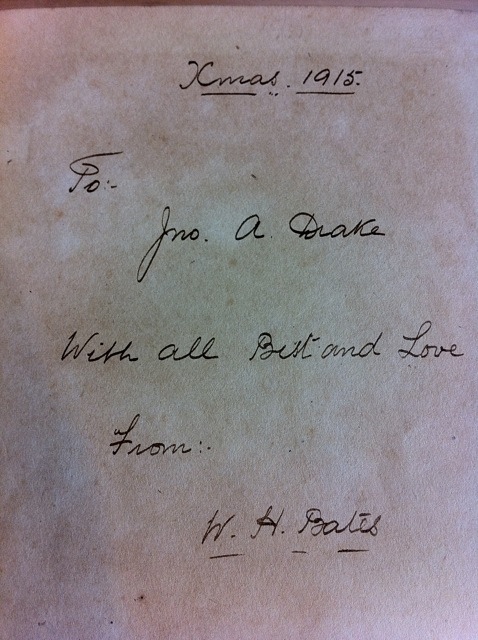 Xmas. 1915.
To:-
Jno. A. Drake
With all Best and Love
From:-
W. H. Bates